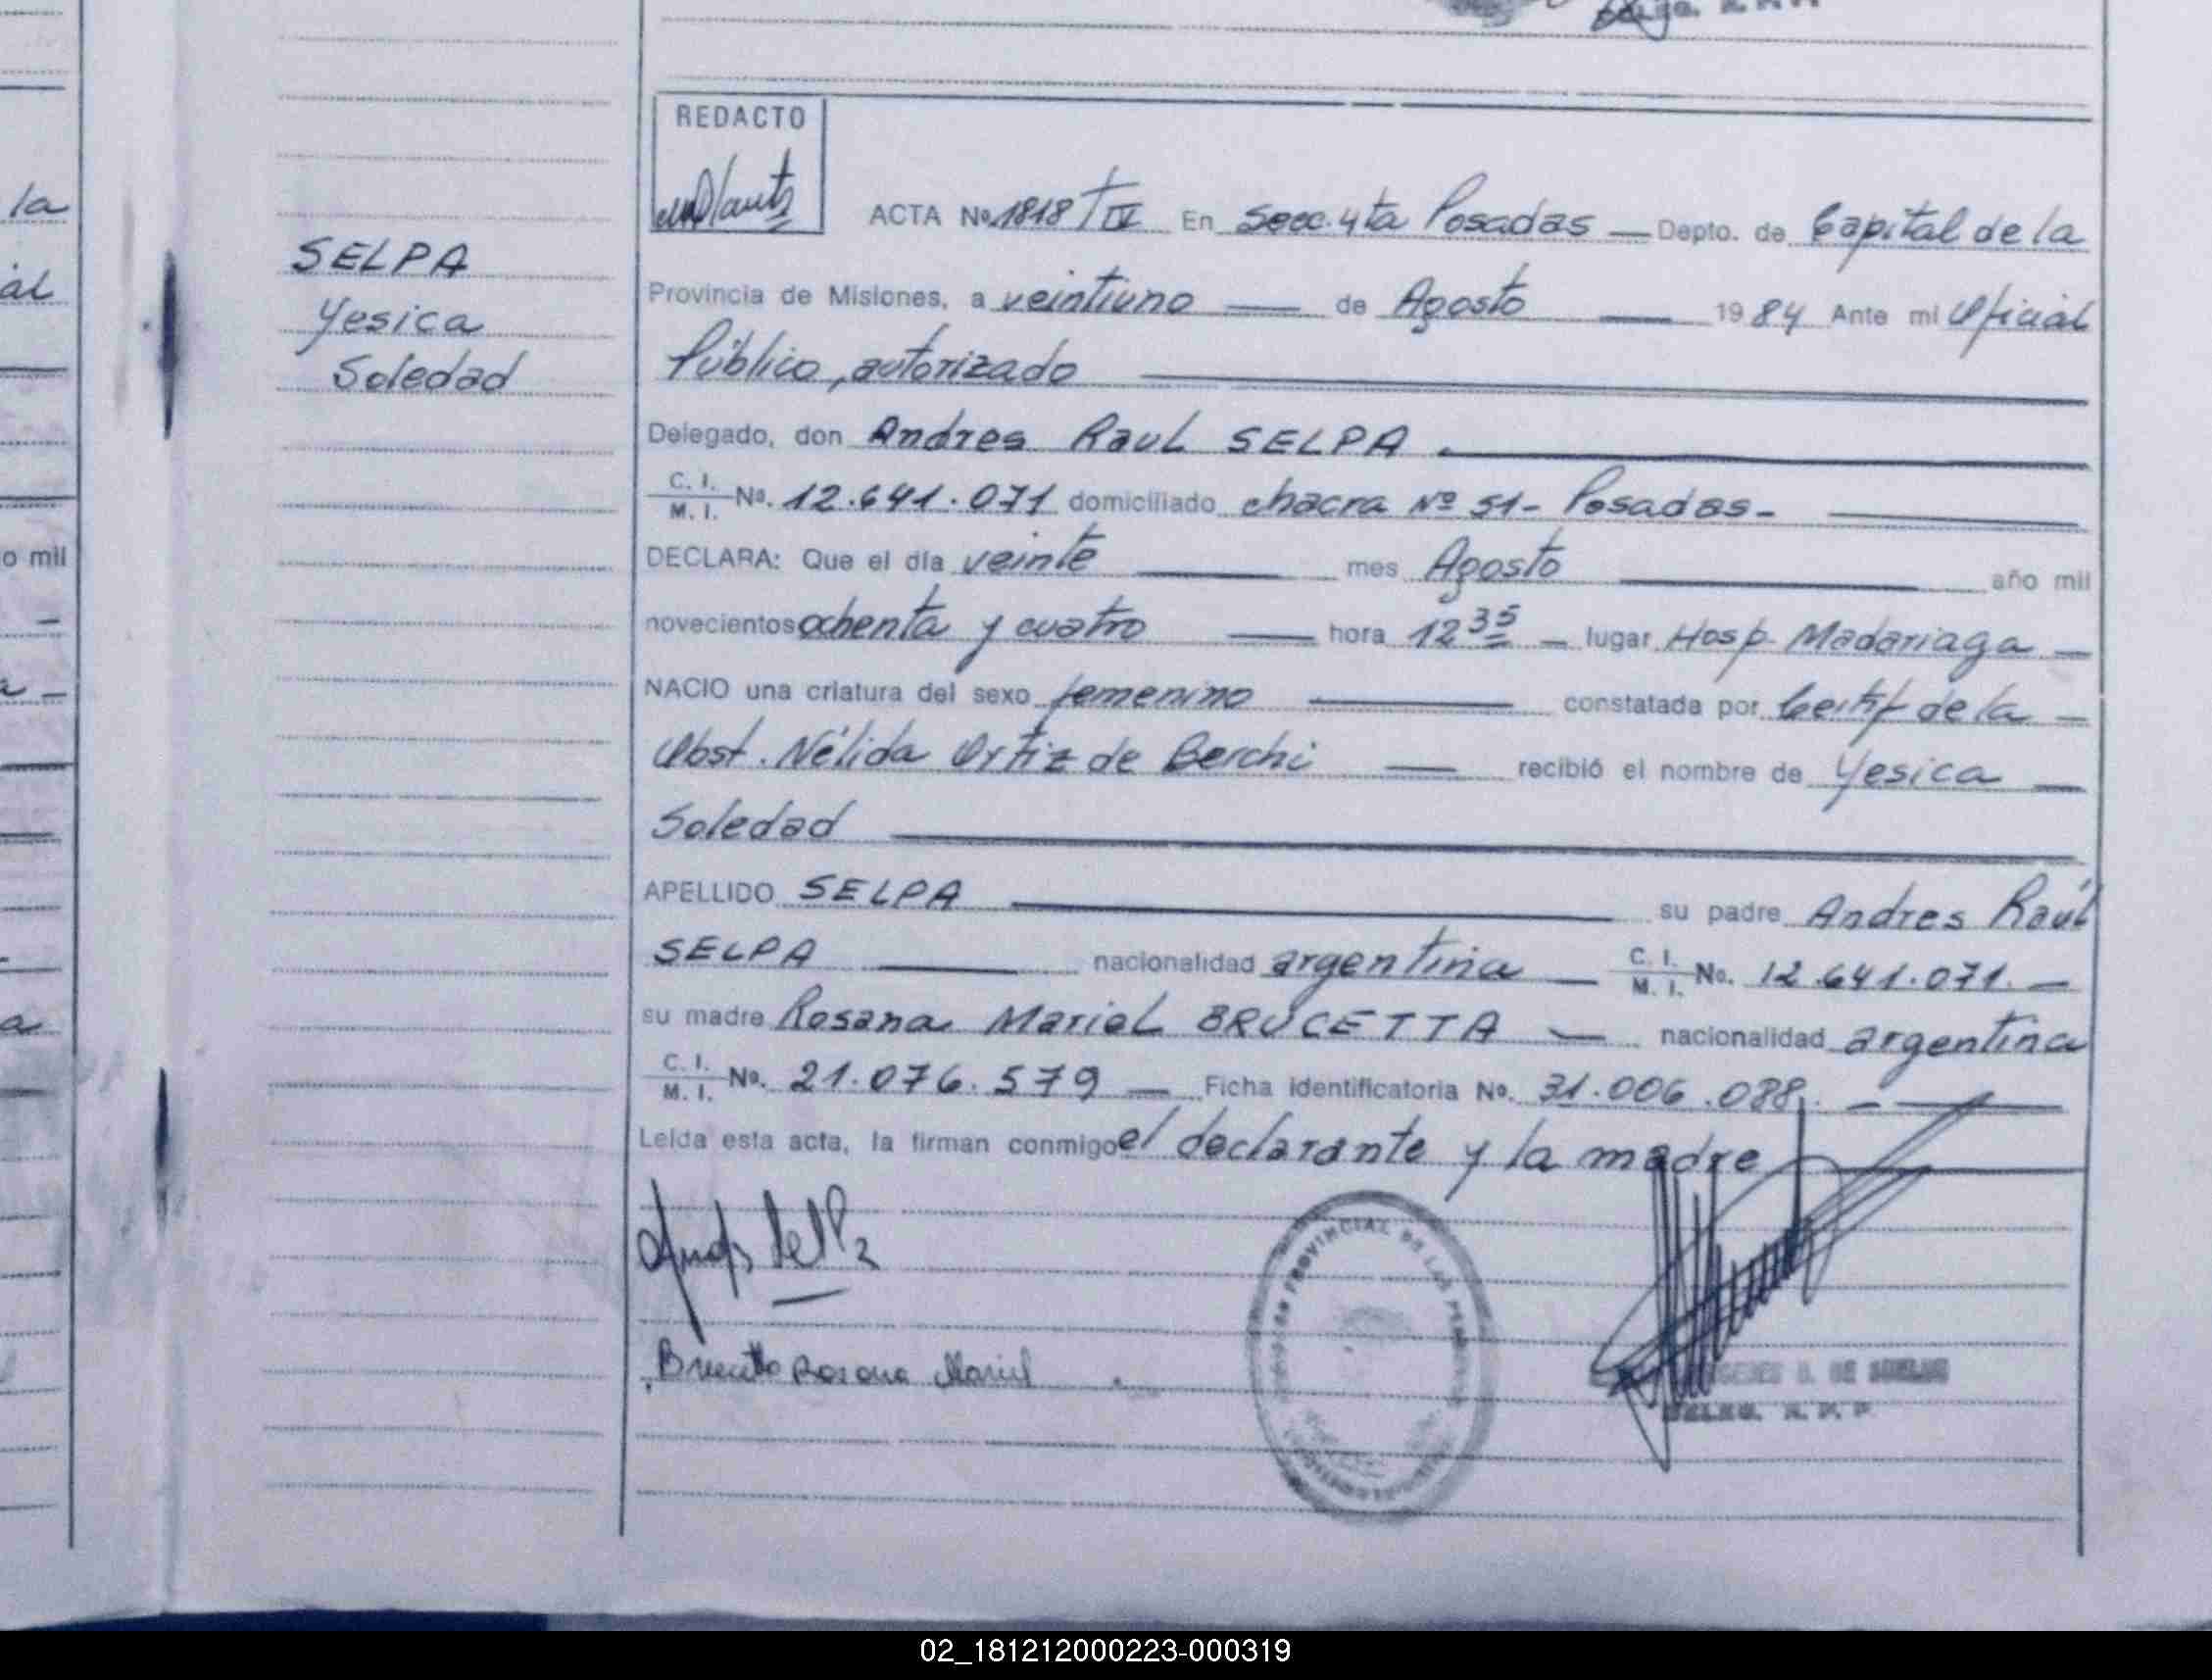 la
al
o mil
a
SELPA
Yesica
Soledad
REDACTO
ACTA No. 1818 T IV En Secc. 4ta Posadas — Depto. de Capital de la
Provincia de Misiones, a veintiuno — de Agosto — 1984 Ante mi Oficial
Público, autorizado
Delegado, don Andres Raul SELPA
C. I. / M. I. No. 12.641.071 domiciliado chacra Nº 51- Posadas-
DECLARA: Que el día veinte — mes Agosto — año mil
novecientos ochenta y cuatro — hora 12 35 — lugar Hosp. Madariaga —
NACIO una criatura del sexo femenino — constatada por Certif de la —
Obst. Nélida Ortiz de Berchi — recibió el nombre de Yesica —
Soledad
APELLIDO SELPA — su padre Andres Raúl
SELPA — nacionalidad argentina — C. I. / M. I. No. 12.641.071. —
su madre Rosana Mariel BRUCETTA — nacionalidad argentina
C. I. / M. I. No. 21.076.579 — Ficha identificatoria No. 31.006.088. —
Leída esta acta, la firman conmigo el declarante y la madre
Brucetta Rosana Mariel
PROVINCIAL DE LAS PERSONAS
DELEG. R. P. P.
02_181212000223-000319